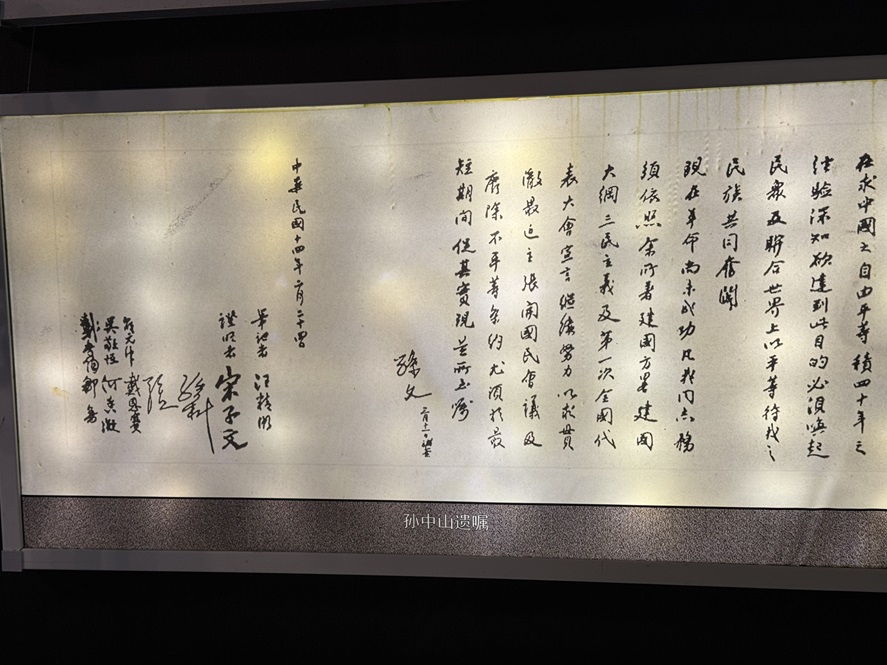 在求中國之自由平等積四十年之
經驗深知欲達到此目的必須喚起
民衆及聯合世界上以平等待我之
民族共同奮鬥
現在革命尚未成功凡我同志務
須依照余所著建國方畧建國
大綱三民主義及第一次全國代
表大會宣言繼續努力以求貫
澈最近主張開國民會議及
廢除不平等條約尤須於最
短期間促其實現是所至囑
孫文 三月十一日補簽
中華民國十四年二月二十四日
筆記者 汪精衛
證明者 宋子文
孫科
戴恩賽
吳敬恆 何香凝
孙中山遗嘱